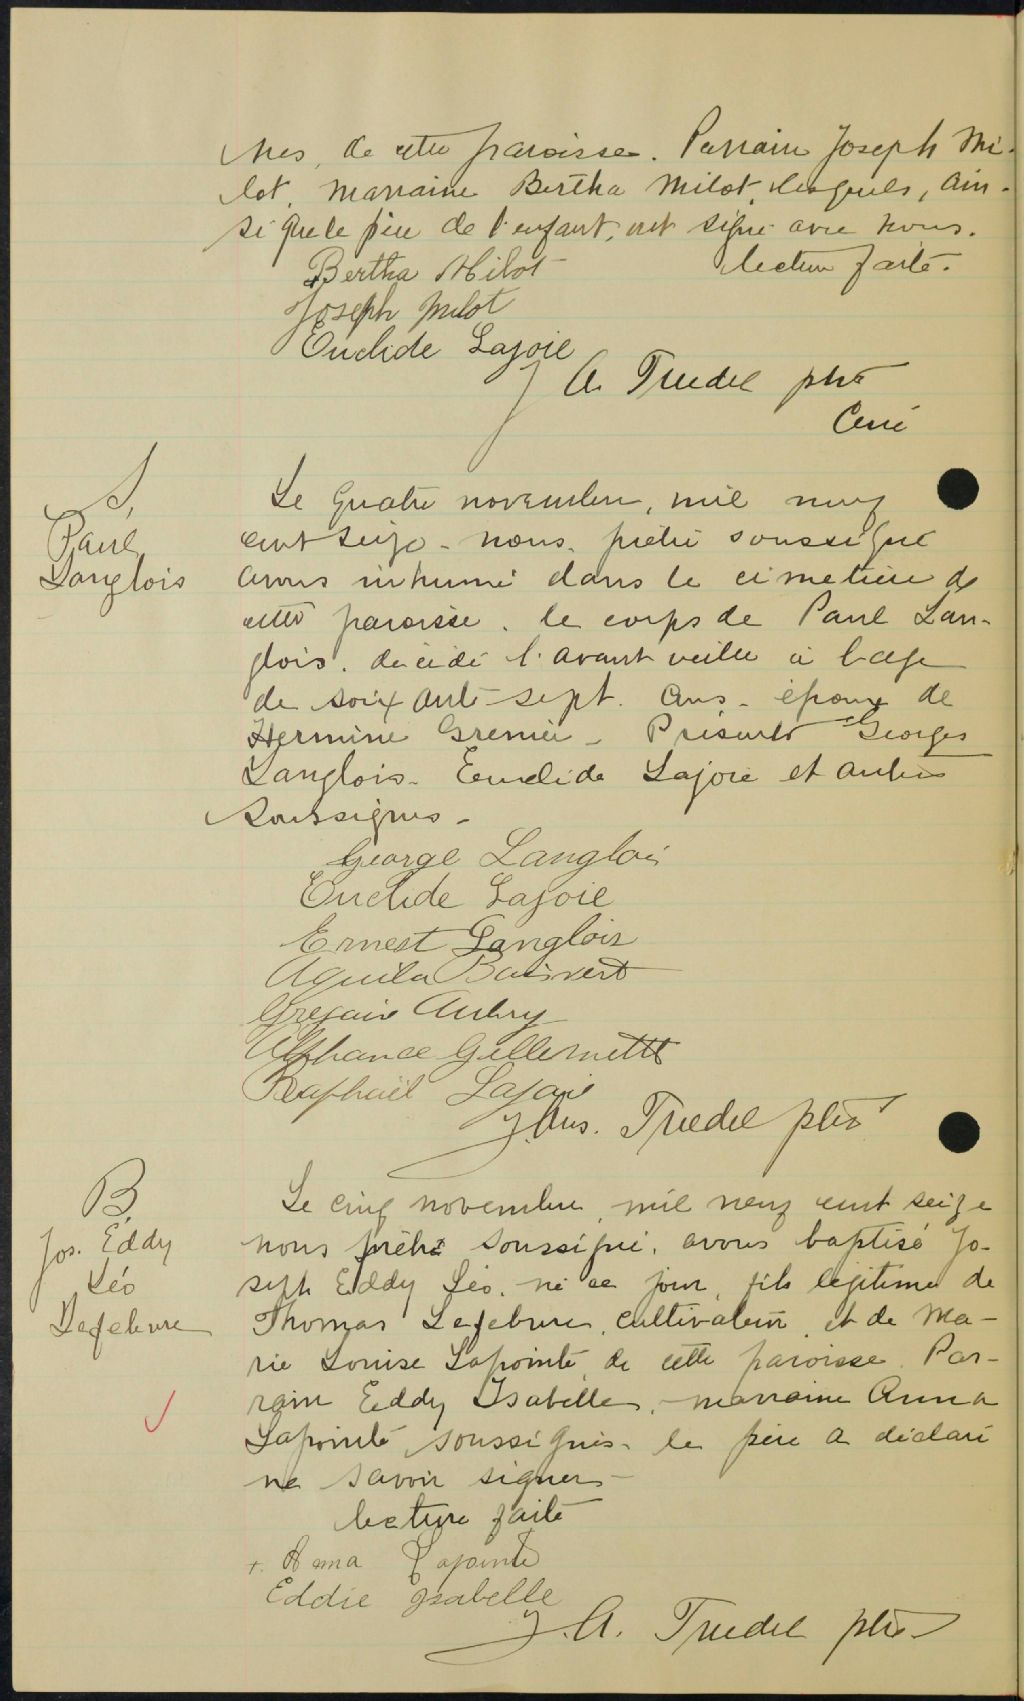 de cette paroisse. Parrain Joseph Mi-
lot, marraine Bertha Milot, lesquels, ain-
si que le père de l'enfant, ont signé avec nous.
Bertha Milot lecture faite.
Joseph Milot
Euclide Lajoie
J A. Trudel ptre
Curé
S.
Paul
Langlois
Le quatre novembre, mil neuf
cent seize - nous, prêtre soussigné
avons inhumé dans le cimetière de
cette paroisse, le corps de Paul Lan-
glois, décédé l'avant veille à l'age
de soixante-sept ans, époux de
Hermine Grenier - Présents Georges
Langlois - Euclide Lajoie et autres
soussignés -
George Langlois
Euclide Lajoie
Ernest Langlois
Aquila Boisvert
Gregoire Aubry
Alphonse Gellernette
Raphaël Lajoie
J. Ans. Trudel ptre
B.
Jos. Eddy
Léo
Lefebvre
Le cinq novembre, mil neuf cent seize
nous prêtre soussigné, avons baptisé Jo-
seph Eddy Léo, né ce jour, fils légitime de
Thomas Lefebvre, cultivateur, et de Ma-
rie Louise Lapointe, de cette paroisse. Par-
rain Eddy Isabelle, marraine Anna
Lapointe soussignés - le père a déclaré
ne savoir signer -
lecture faite
+. Anna Lapointe
Eddie Isabelle
J. A. Trudel ptre